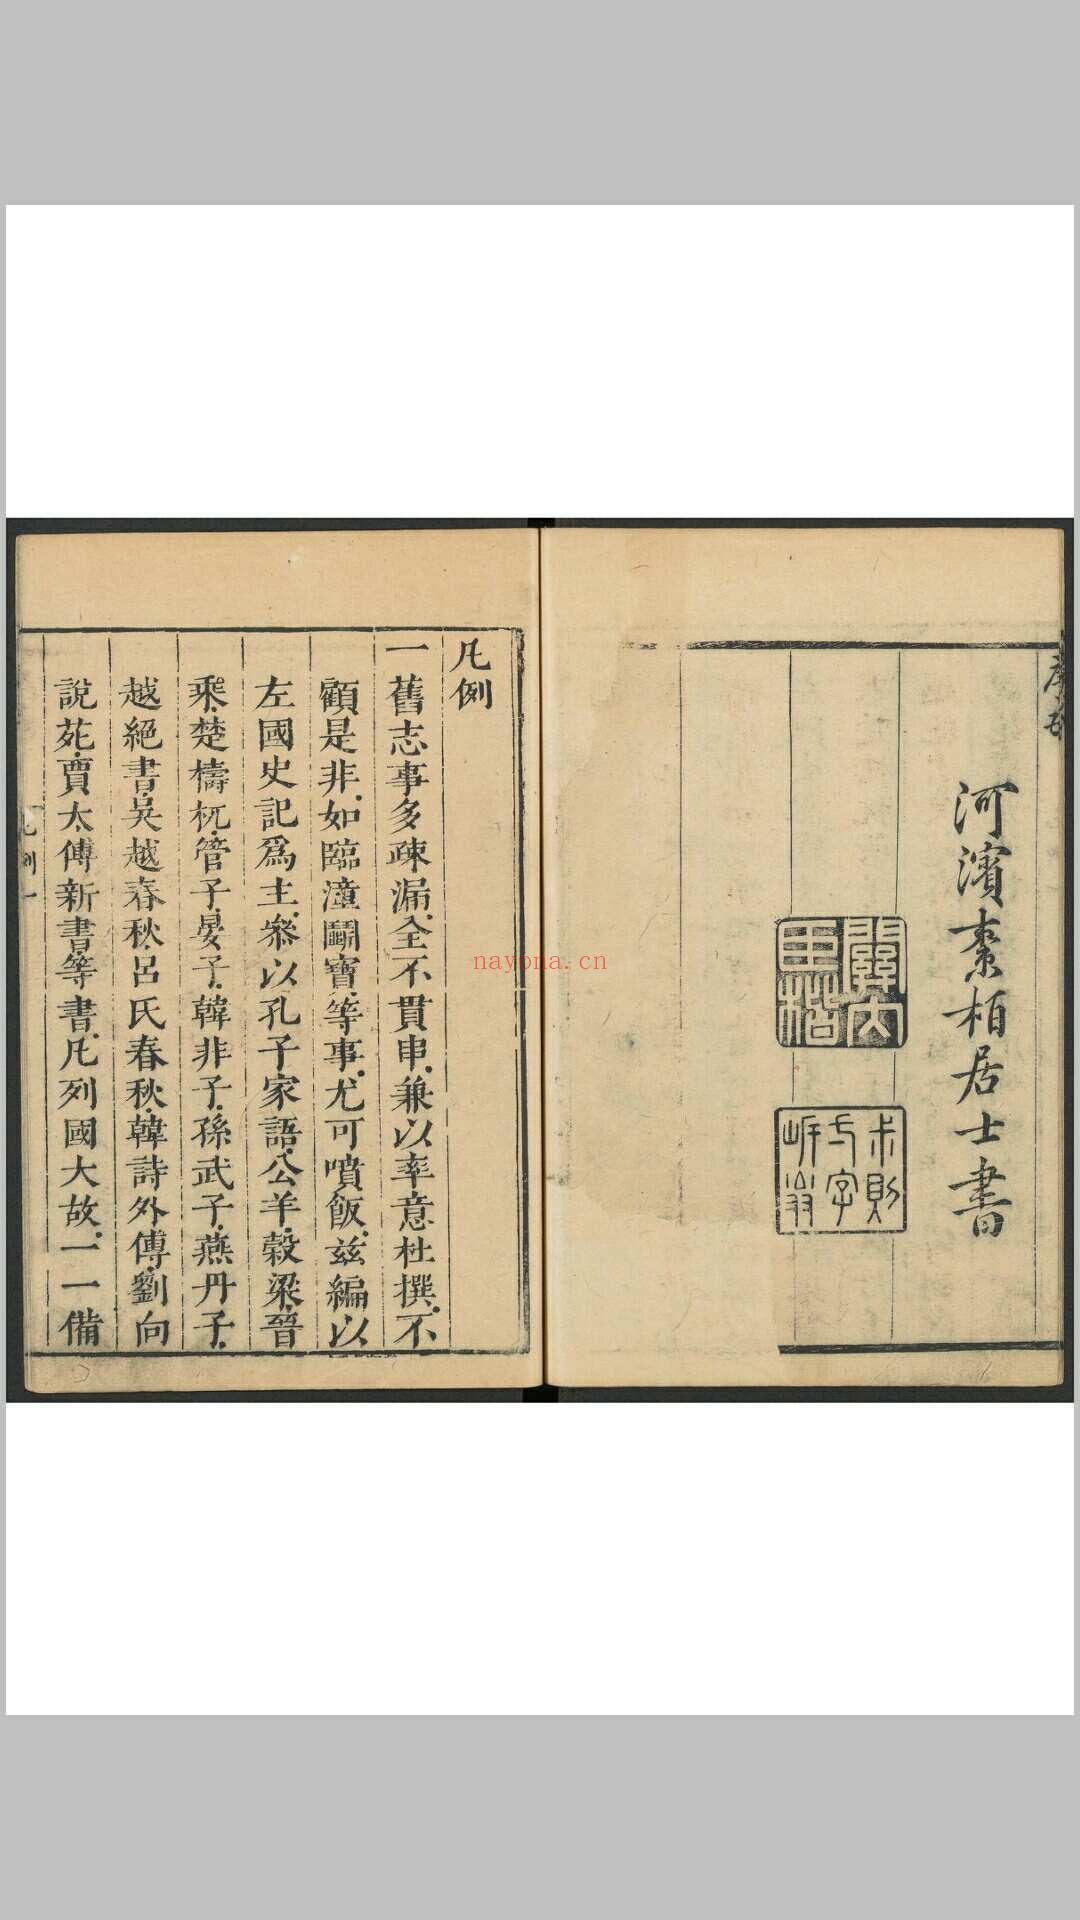 河濱 栢居士書
凡例
一舊志事多疎漏、全不貫串、兼以率意杜撰、不
顧是非、如臨潼鬭寶、等事、尤可噴飯、茲編以
左國史記爲主、參以孔子家語、公羊、穀梁、晉
乘、楚檮杌、管子、晏子、韓非子、孫武子、燕丹子、
越絕書、吳越春秋、呂氏春秋、韓詩外傳、劉向
說苑、賈太傅新書、等書、凡列國大故、一一備
凡例一
nayona.cn